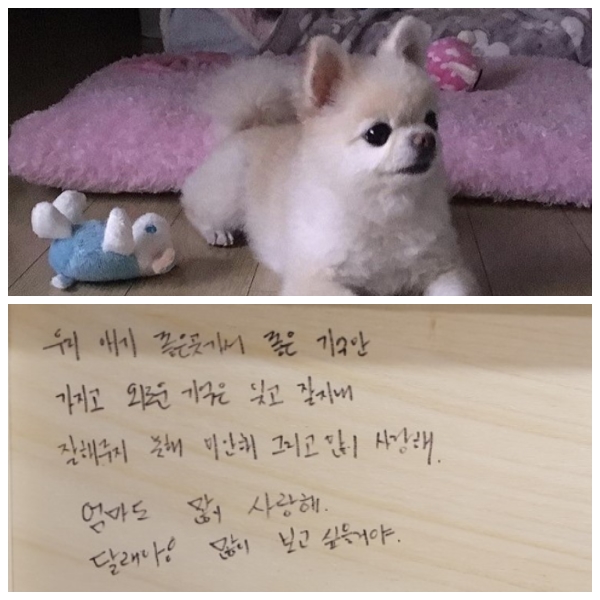 우리 애기 좋은곳에서 좋은 기억만
가지고 외로운 기억은 잊고 잘지내
잘해주지 못해 미안해 그리고 많이 사랑해.
엄마도 많이 사랑해.
달래야 많이 보고 싶을거야.